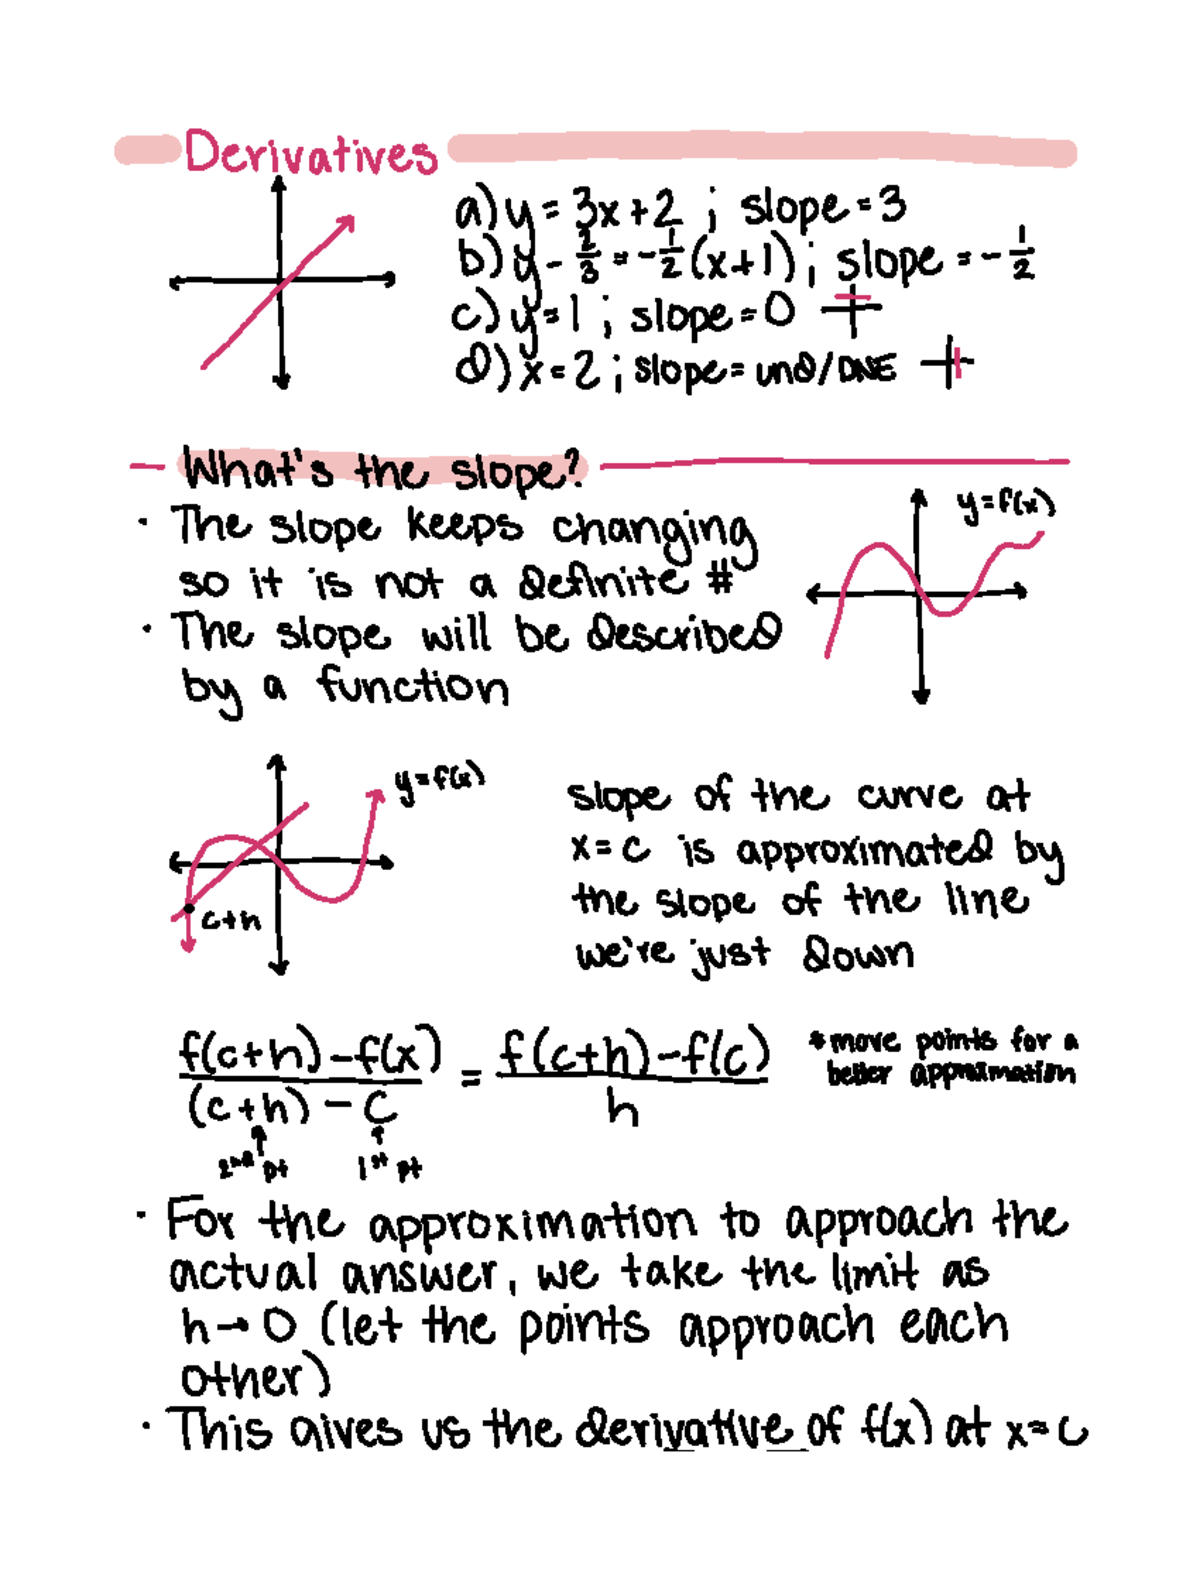 Derivatives
a) y = 3x+2 ; slope = 3
b) y - 2/3 = -1/2 (x+1) ; slope = - 1/2
c) y = 1 ; slope = 0
d) x = 2 ; slope = und/DNE
What's the slope?
· The slope keeps changing
so it is not a definite #
y = f(x)
· The slope will be described
by a function
y = f(x)
c+h
slope of the curve at
x = c is approximated by
the slope of the line
we're just down
f(c+h) - f(x) / (c+h) - c = f(c+h) - f(c) / h
2nd pt 1st pt
* move points for a
better approximation
· For the approximation to approach the
actual answer, we take the limit as
h→0 (let the points approach each
other)
· This gives us the derivative of f(x) at x=c